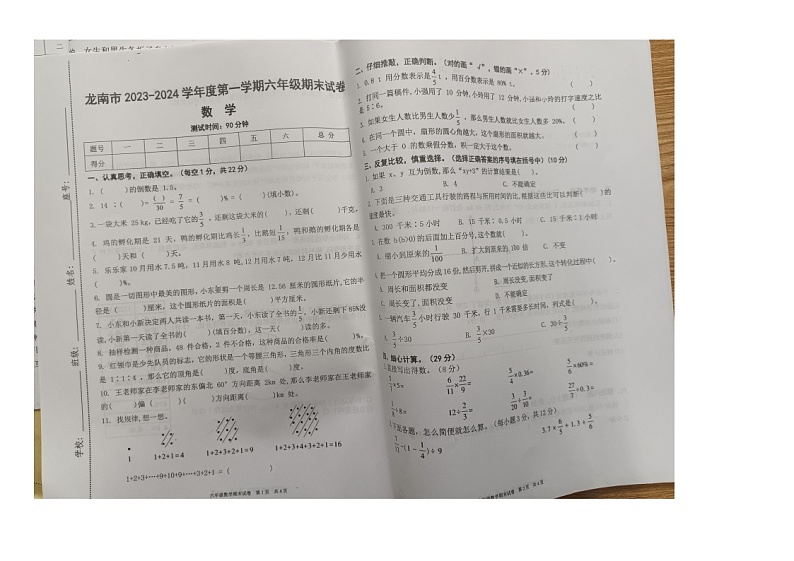 龙南市 2023-2024 学年度第一学期六年级期末试卷
数 学
测试时间：90 分钟
题号 一 二 三 四 五 六 总 分
得分
一、认真思考，正确填空。（每空 1 分，共 22 分）
1. （ ）的倒数是 1.5。
2. 14：（ ）= ( )/30 = 7/5 =（ ）% =（ ）（填小数）。
3. 一袋大米 25 kg，已经吃了它的 3/5，还剩这袋大米的（ ），还剩（ ）千克。
4. 鸡的孵化期是 21 天，鸭的孵化期比鸡长 1/3，比鹅短 1/15，鸭和鹅的孵化期各是
（ ）天和（ ）天。
5. 乐乐家 10 月用水 7.5 吨，11 月用水 8 吨，12 月用水 7 吨，12 月比 11 月少用水
（ ）%。
6. 圆是一切图形中最美的图形，小东要剪一个周长是 12.56 厘米的圆形纸片，它的半
径是（ ）厘米，这个圆形纸片的面积是（ ）平方厘米。
7. 小东和小新决定两人共读一本书，第一天，小东读了全书的 1/5，小新还剩下 85%没
读，小新第一天读了全书的（ ）（填百分数），这一天（ ）读的多。
8. 抽样检测一种商品，48 件合格，2 件不合格，这种商品的合格率是（ ）%。
9. 红领巾是少先队员的标志，它的形状是一个等腰三角形，三角形三个内角的度数比
是 1：1：4，那么它的顶角是（ ）度，底角是（ ）度。
10. 王老师家在李老师家的东偏北 60° 方向距离 2km 处，那么李老师家在王老师家
的（ ）偏（ ）（ ）方向距离（ ）km 处。
11. 找规律，想一想。
1 1+2+1=4 1+2+3+2+1=9 1+2+3+4+3+2+1=16
1+2+3+…+9+10+9+…+3+2+1 =（ ）
六年级数学期末试卷 第 1 页 共 4 页
学校： 班级： 姓名： 座号：
二、仔细推敲，正确判断。（对的画“√”，错的画“×”，5 分）
1. 0.8 t 用分数表示是 4/5 t，用百分数表示是 80% t。（ ）
2. 打同一篇稿件，小强用了 10 分钟，小玲用了 12 分钟，小强和小玲的打字速度之比
是 5：6。（ ）
3. 如果女生人数比男生人数少 1/5，那么男生人数就比女生人数多 20%。（ ）
4. 在同一个圆中，扇形的圆心角越大，这个扇形的面积就越大。（ ）
5. 一个大于 0 的数乘假分数，积一定大于这个数。（ ）
三、反复比较，慎重选择。（选择正确答案的序号填在括号中）(10 分)
1. 如果 x，y 互为倒数，那么“xy+3”的计算结果是（ ）。
A. 3 B. 4 C. 不能确定
2. 下面是三种交通工具行驶的路程与所用时间的比，根据这些比可以判断（ ）的
速度最快。
A. 300 千米：5 小时 B. 15 千米：0.5 小时 C. 15 千米：1 小时
3. 在数 b(b≠0) 的后面加上百分号，这个数就（ ）。
A. 缩小到原来的 1/100 B. 扩大到原来的 100 倍 C. 不变
4. 把一个圆形平均分成 16 份，然后剪开，拼成一个近似的长方形，这个转化过程中（ ）。
A. 周长和面积都没变 B. 周长没变，面积变了
C. 周长变了，面积没变 D. 不能确定
小时行驶 30 千米，行 1 千米需要多长时间，列式是（ ）。
四、细心计算。（29 分）
1. 直接写出得数。（8 分）
6/11 × 22/9 = 5/4 × 0.36=
12÷ 2/3 = 3/20 ÷ 3/10 =
（每小题 3 分，共 12 分）